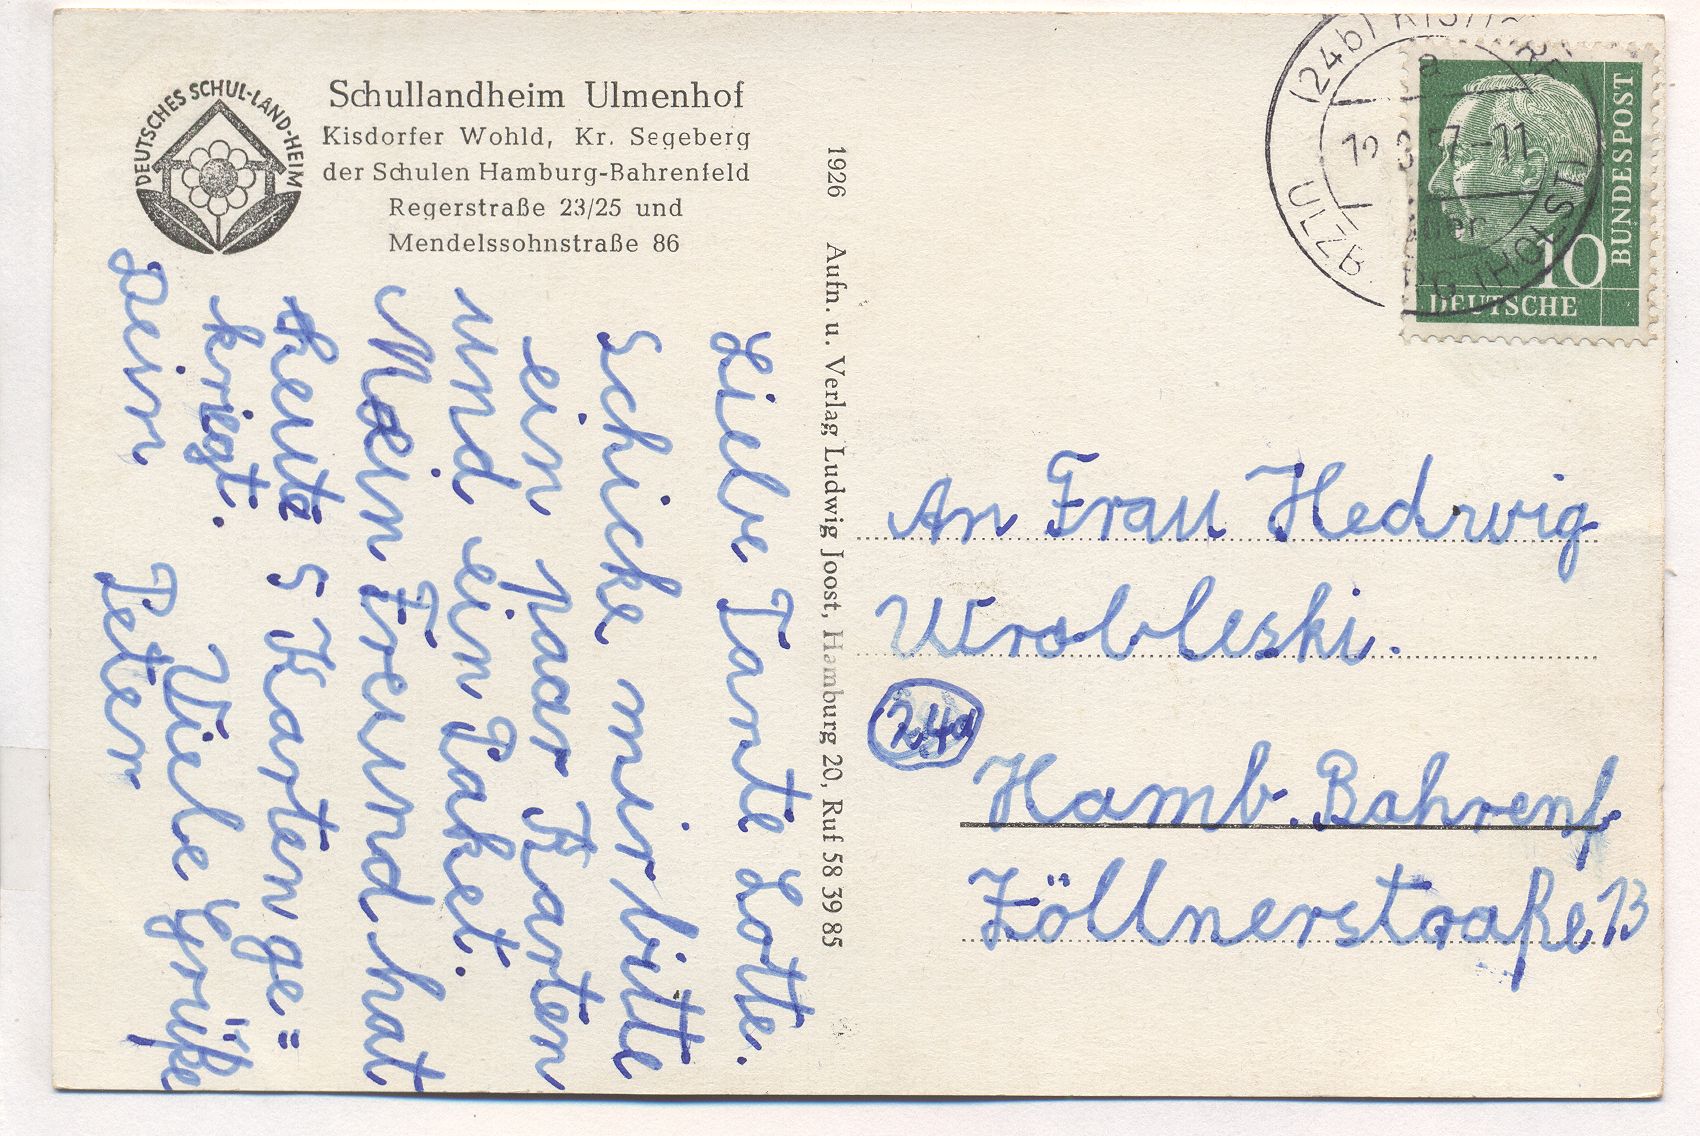 DEUTSCHES SCHUL-LAND-HEIM
Schullandheim Ulmenhof
Kisdorfer Wohld, Kr. Segeberg
der Schulen Hamburg-Bahrenfeld
Regerstraße 23/25 und
Mendelssohnstraße 86
Liebe Tante Lotte.
Schicke mir bitte
ein paar Karten
und ein Paket.
Mein Freund hat
Heute 5 Karten ge=
kriegt. Viele Grüße
Dein Peter
1926 Aufn. u. Verlag Ludwig Joost, Hamburg 20, Ruf 58 39 85
(24b)
a
57-11
ULZB
(HOLST)
10
DEUTSCHE
BUNDESPOST
An Frau Hedwig
Wrobleski.
24a
Hamb. Bahrenf
Zöllnerstraße 13